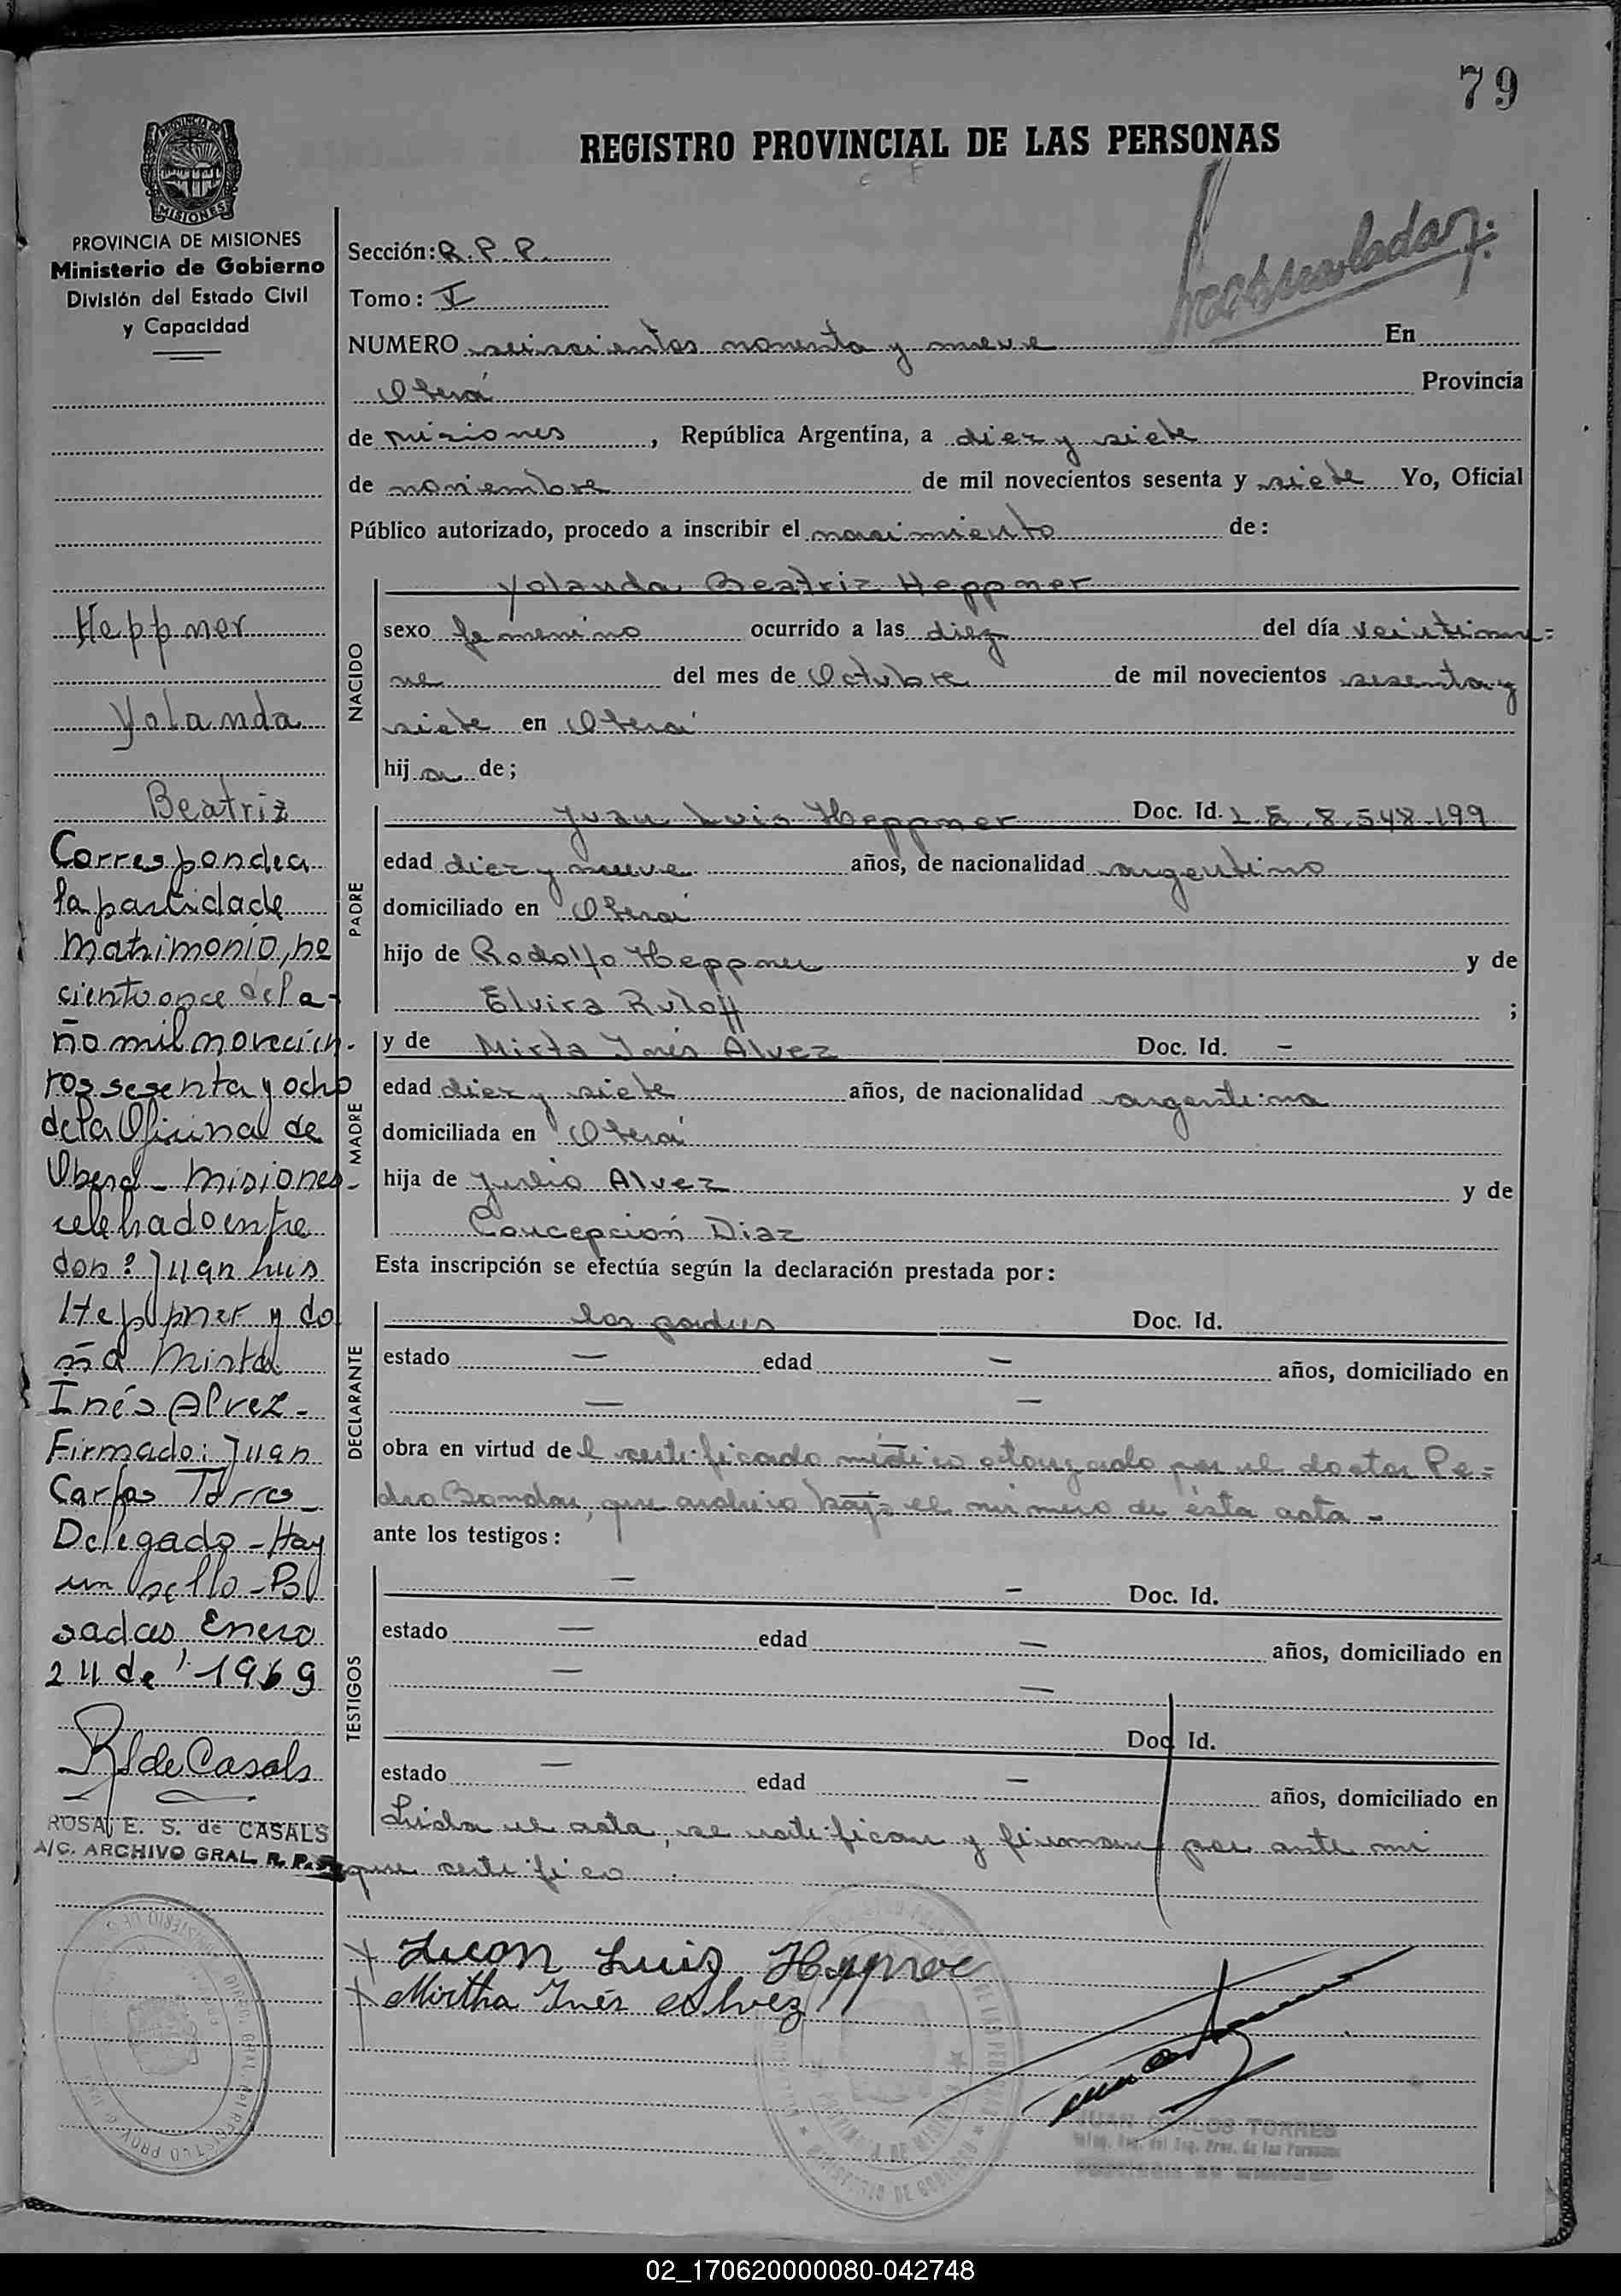 79
REGISTRO PROVINCIAL DE LAS PERSONAS
PROVINCIA DE
MISIONES
PROVINCIA DE MISIONES
Ministerio de Gobierno
División del Estado Civil
y Capacidad
Heppner
Yolanda
Beatriz
Corresponde a
la partida de
matrimonio, no
ciento once del a-
ño mil novecien-
tos sesenta y ocho
de la Oficina de
Oberá - Misiones -
celebrado entre
don: Juan Luis
Heppner y do
ña Mirta
Inés Alvez -
Firmado: Juan
Carlos Torres -
Delegado - Hay
un sello - Po
sadas, Enero
24 de 1969
R de Casals
ROSA E. S. de CASALS
A/C. ARCHIVO GRAL. R. P. P.
Sección: R. P. P.
Tomo: I
NUMERO seiscientos noventa y nueve En
Oberá Provincia
de misiones, República Argentina, a diez y siete
de noviembre de mil novecientos sesenta y siete Yo, Oficial
Público autorizado, procedo a inscribir el nacimiento de:
NACIDO
Yolanda Beatriz Heppner
sexo femenino ocurrido a las diez del día veintinue=
ve del mes de Octubre de mil novecientos sesenta y
siete en Oberá
hija de;
PADRE
Juan Luis Heppner Doc. Id. L. E. 8.548.199
edad diez y nueve años, de nacionalidad argentino
domiciliado en Oberá
hijo de Rodolfo Heppner y de
Elvira Ruloff ;
MADRE
y de Mirta Inés Alvez Doc. Id. -
edad diez y siete años, de nacionalidad argentina
domiciliada en Oberá
hija de Julio Alvez y de
Concepción Diaz
Esta inscripción se efectúa según la declaración prestada por:
DECLARANTE
los padres Doc. Id.
estado — edad — años, domiciliado en
— —
obra en virtud del certificado médico otorgado por el doctor Pe=
dro Bondar, que archivo bajo el número de ésta acta -
ante los testigos:
TESTIGOS
— — Doc. Id.
estado — edad — años, domiciliado en
— —
Doc. Id.
estado — edad — años, domiciliado en
Leida el acta, se ratifican y firman por ante mi
que certifico.
x Juan Luis Heppner
x Mirtha Inés Alvez
JUAN CARLOS TORRES
02_170620000080-042748